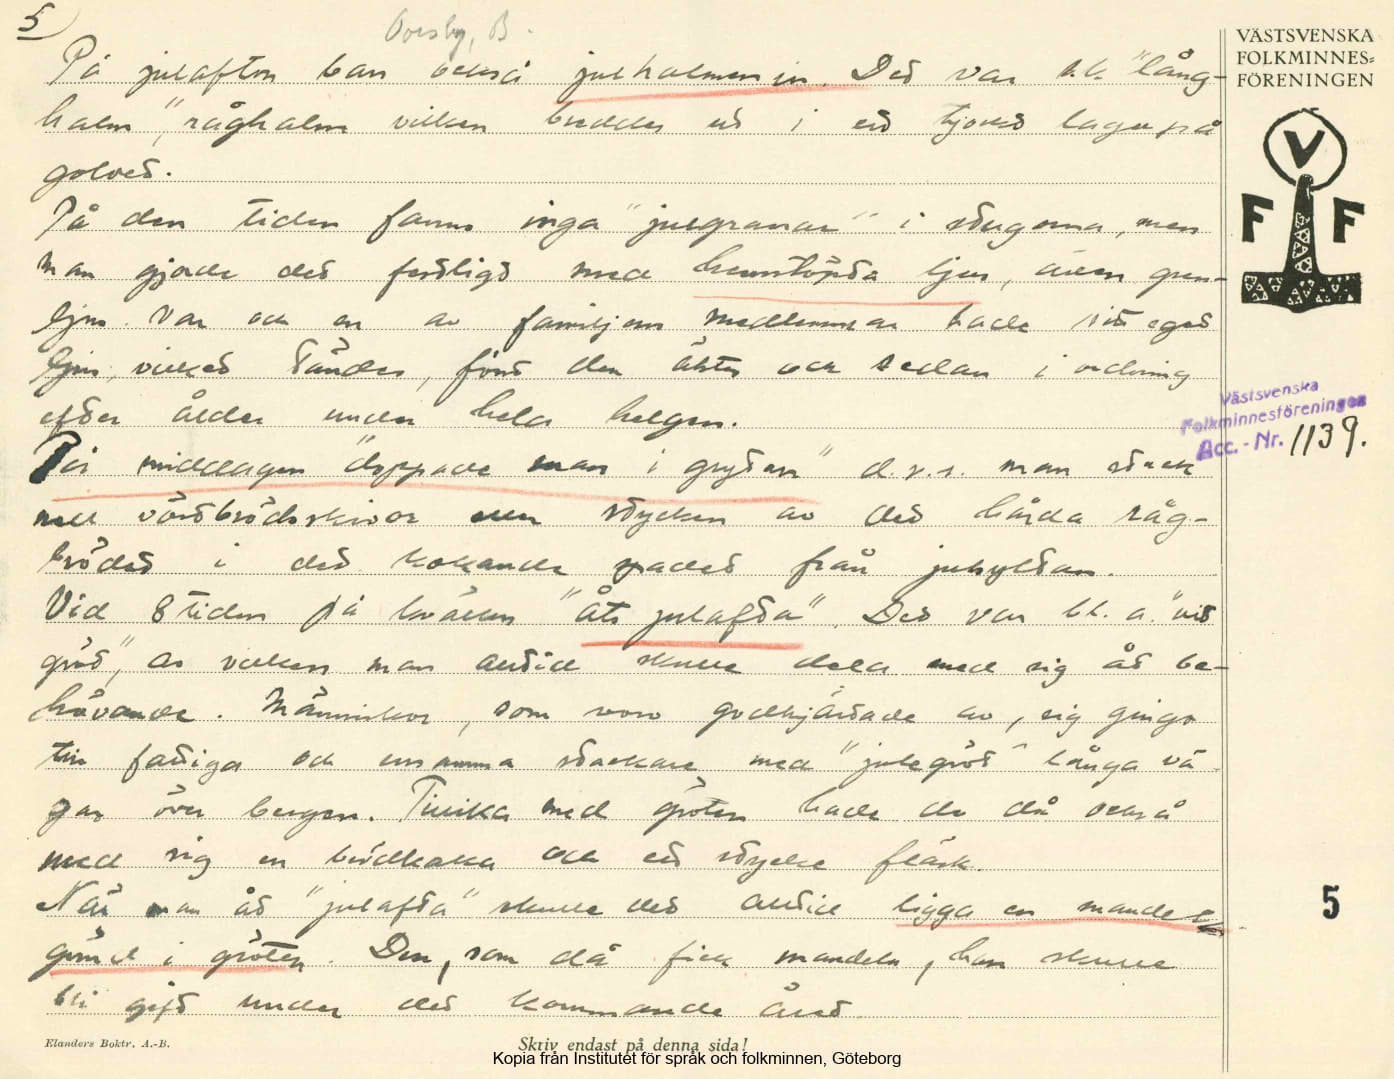 5
Torsby, B.
VÄSTSVENSKA
FOLKMINNES=
FÖRENINGEN
V
F F
På julafton bars också julhalmen in. Det var s.k. "lång-
halm", råghalm vilken breddes ut i ett tjockt lager på
golvet.
På den tiden fanns inga "julgranar" i stugorna, men
man gjorde det festligt med hemstöpta ljus, även gren-
ljus. Var och en av familjens medlemmar hade sitt eget
ljus, vilket tändes, först den äldste och sedan i ordning
efter ålder under hela helgen.
På middagen "doppade man i grytan" d.v.s. man stack
ned vörtbrödsskivor eller stycken av det hårda råg-
brödet i det kokande spadet från julsyltan.
Vid 8 tiden på kvällen "åts julafta". Det var bl.a. "vit
gröt", av vilken man alltid skulle dela med sig åt be-
hövande. Människor, som voro godhjärtade av sig gingo
till fattiga och ensamma stackare med "julegröt" långa vä-
gar över bergen. Tillika med gröten hade de då också
med sig en brödkaka och ett stycke fläsk.
När man åt "julafta" skulle det alltid ligga en mandel
gömd i gröten. Den, som då fick mandeln, han skulle
bli gift under det kommande året.
Västsvenska
Folkminnesföreningen
Acc.-Nr. 1139.
5
Elanders Boktr. A.-B.
Skriv endast på denna sida!
Kopia från Institutet för språk och folkminnen, Göteborg